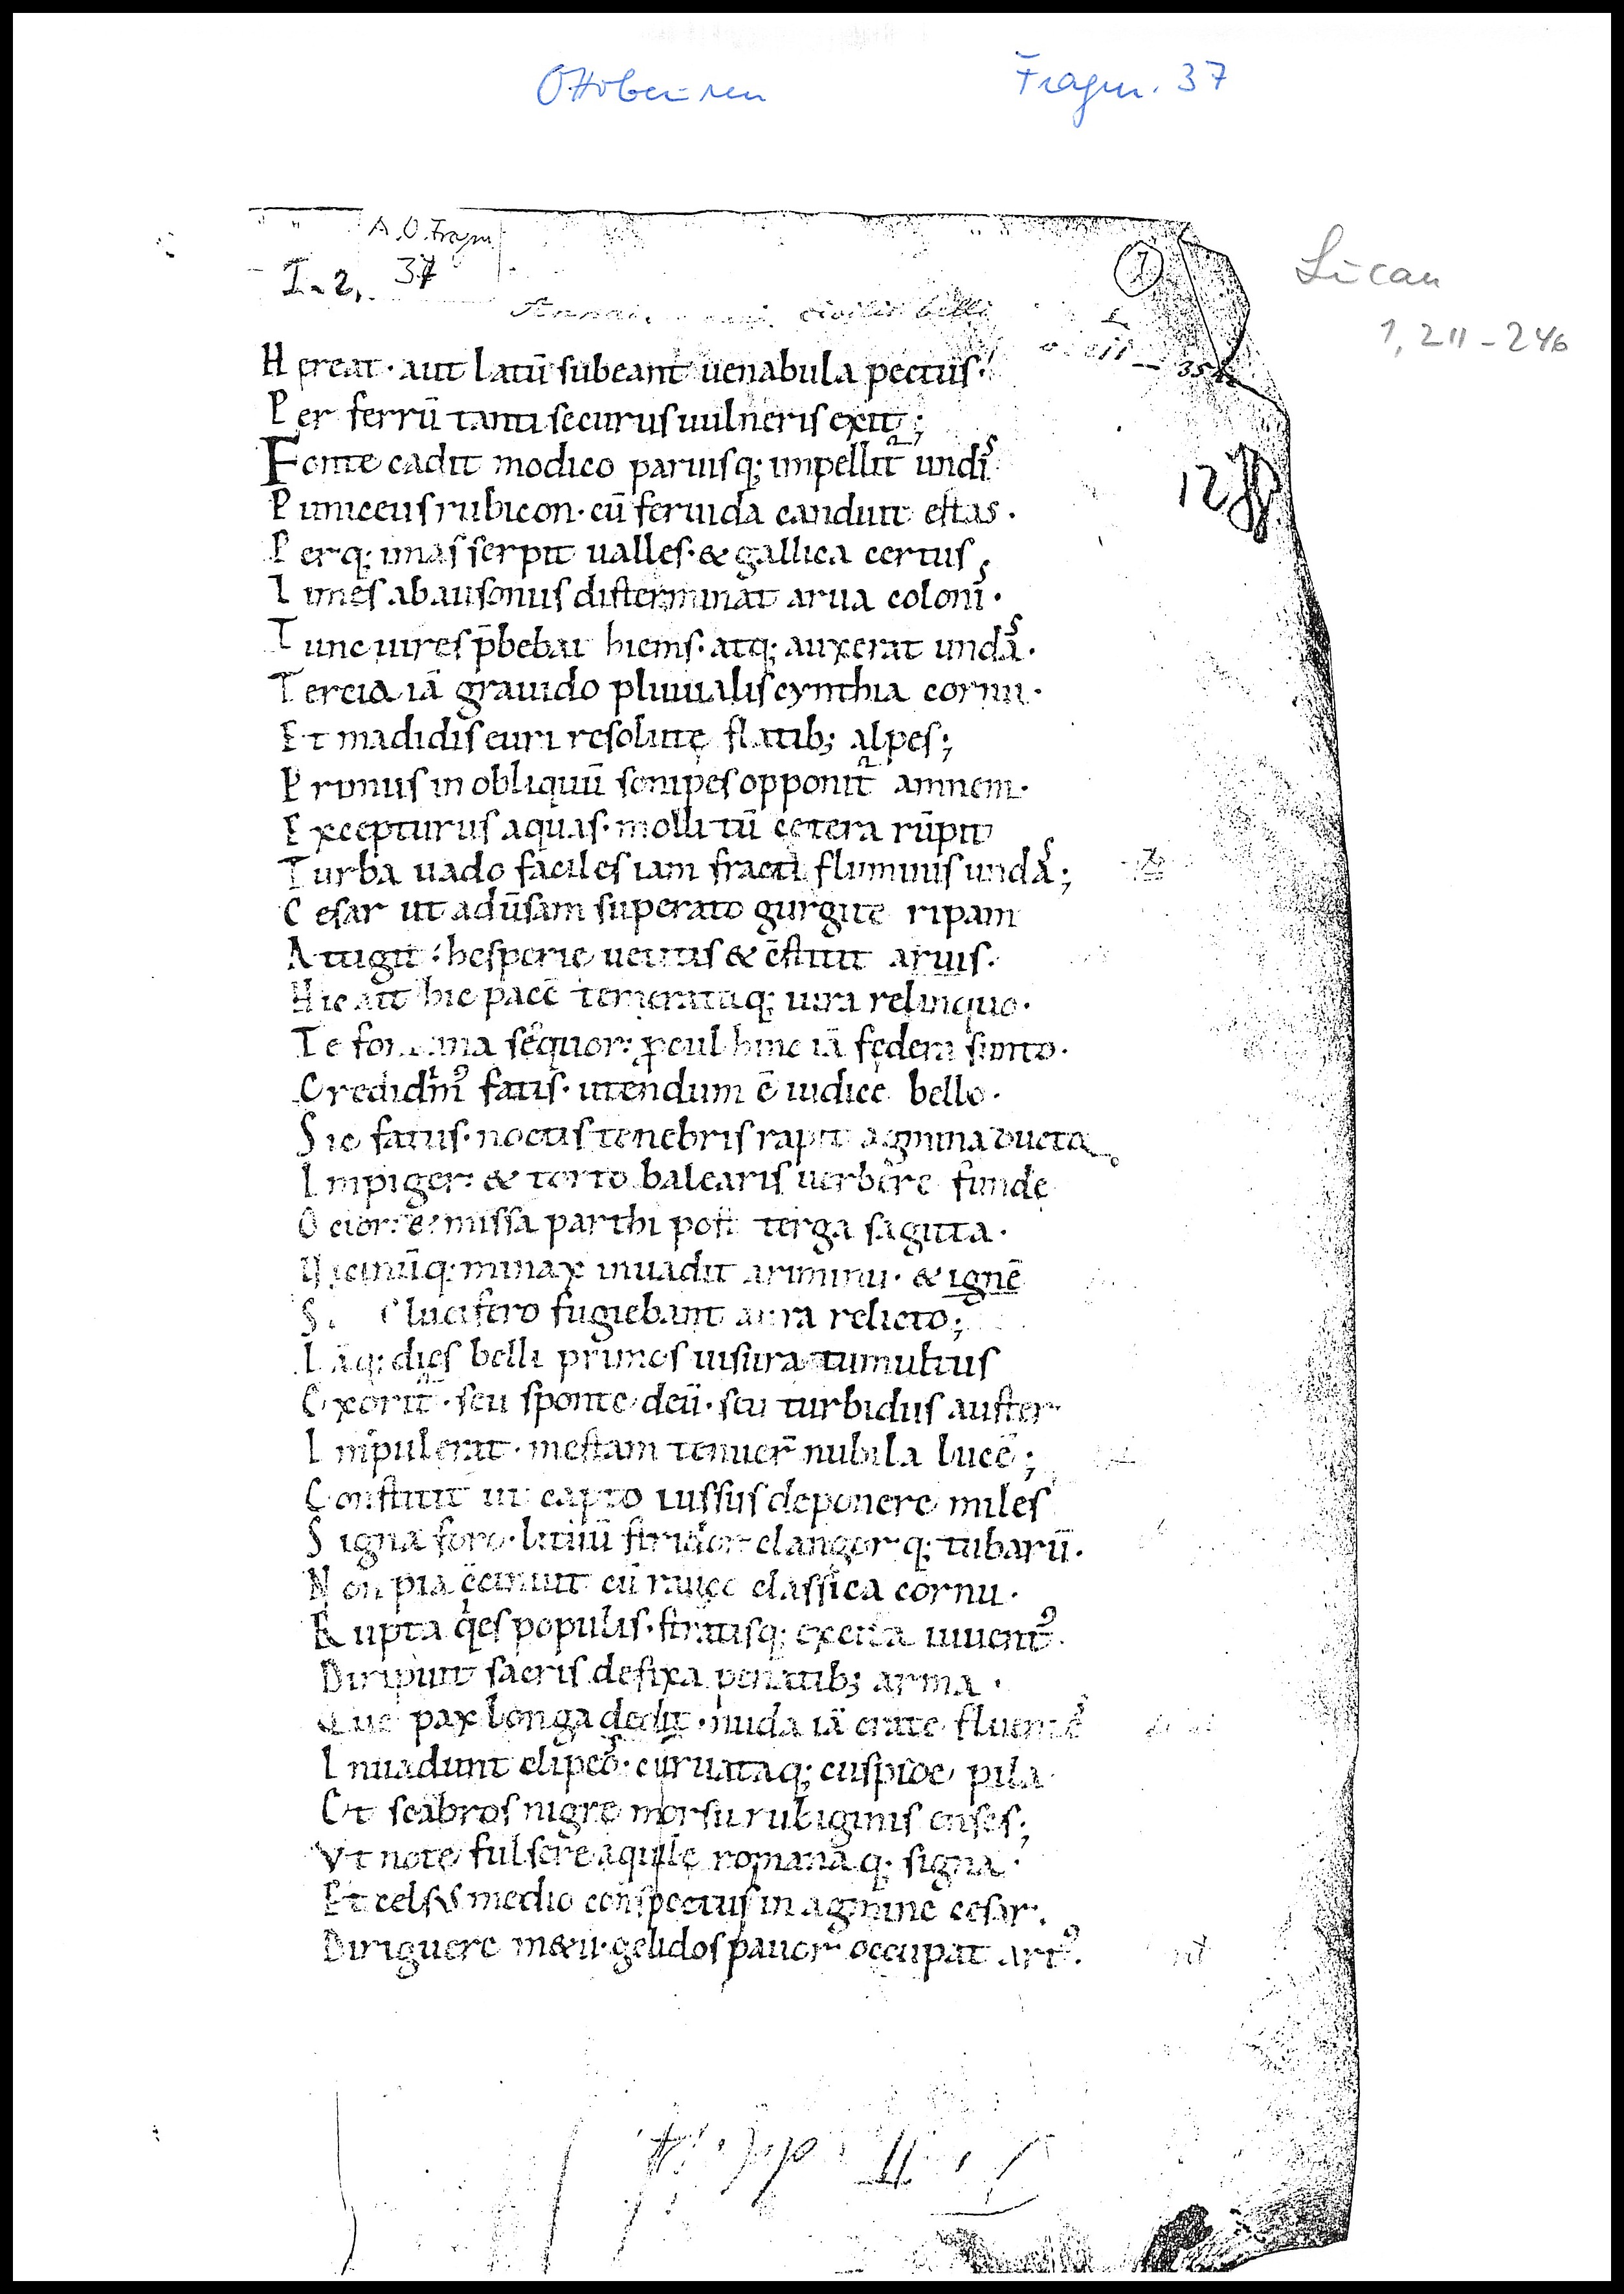 Ottobeuren Fragm. 37
A. O. Fragm
I. 2. 37
1
Lucan
1, 211 - 246
civilis belli
Hereat · aut latū subeant uenabula pectus·
Per ferrū tanti securus uulneris exit;
Fonte cadit modico paruisq; impellit᷑ undis
Puniceus rubicon· cū feruida canduit ęstas·
Perq; imas serpit ualles· & gallica certus
Limes ab ausoniis disterminat arua colonis·
Tunc uires p̄bebat hiems· atq; auxerat undas·
Tercia iā grauido pluuialis cynthia cornu·
Et madidis euri resolutę flatib; alpes;
Primus in obliquū sonipes opponit᷑ amnem·
Excepturus aquas· molli tū cetera rūpit
Turba uado faciles iam fracti fluminis undas;
Cesar ut aduersam superato gurgite ripam
Attigit: hesperie uetitis & c̄stitit aruis·
Hic ait hic pacē temerataq; iura relinquo·
Te fortuna sequor: ꝓcul hinc iā fędera sunto·
Credidim⁹ fatis· utendum ē iudice bello·
Sic fatus· noctis tenebris rapit agmina ductor
Impiger: & torto balearis uerbere fundę
Ocior: & missa parthi post terga sagitta·
Uicinūq; minax inuadit ariminū· & ignē
S lucifero fugiebant astra relicto;
Iāq; dies belli primos uisura tumultus
Exorit᷑· seu sponte deū· seu turbidus auster
Impulerat· mestam tenuer̄ nubila lucē;
Constitit ut capto iussus deponere miles
Signa foro· lituū stridor clangorq; tubarū·
Non pia c̄cinuit cū rauco classica cornu·
Rupta qͥes populis· stratisq; excita iuuent⁹·
Diripiunt sacris defixa penatib; arma·
Que pax longa dedit· nuda iā crate fluentes
Inuadunt clipeos· curuataq; cuspide pila
Et scabros nigro morsu rubiginis enses;
Vt note fulsere aquilę romanaq; signa·
Et celsus medio conspectus in agmine cesar·
Diriguere metu· gelidos pauor occupat art⁹·